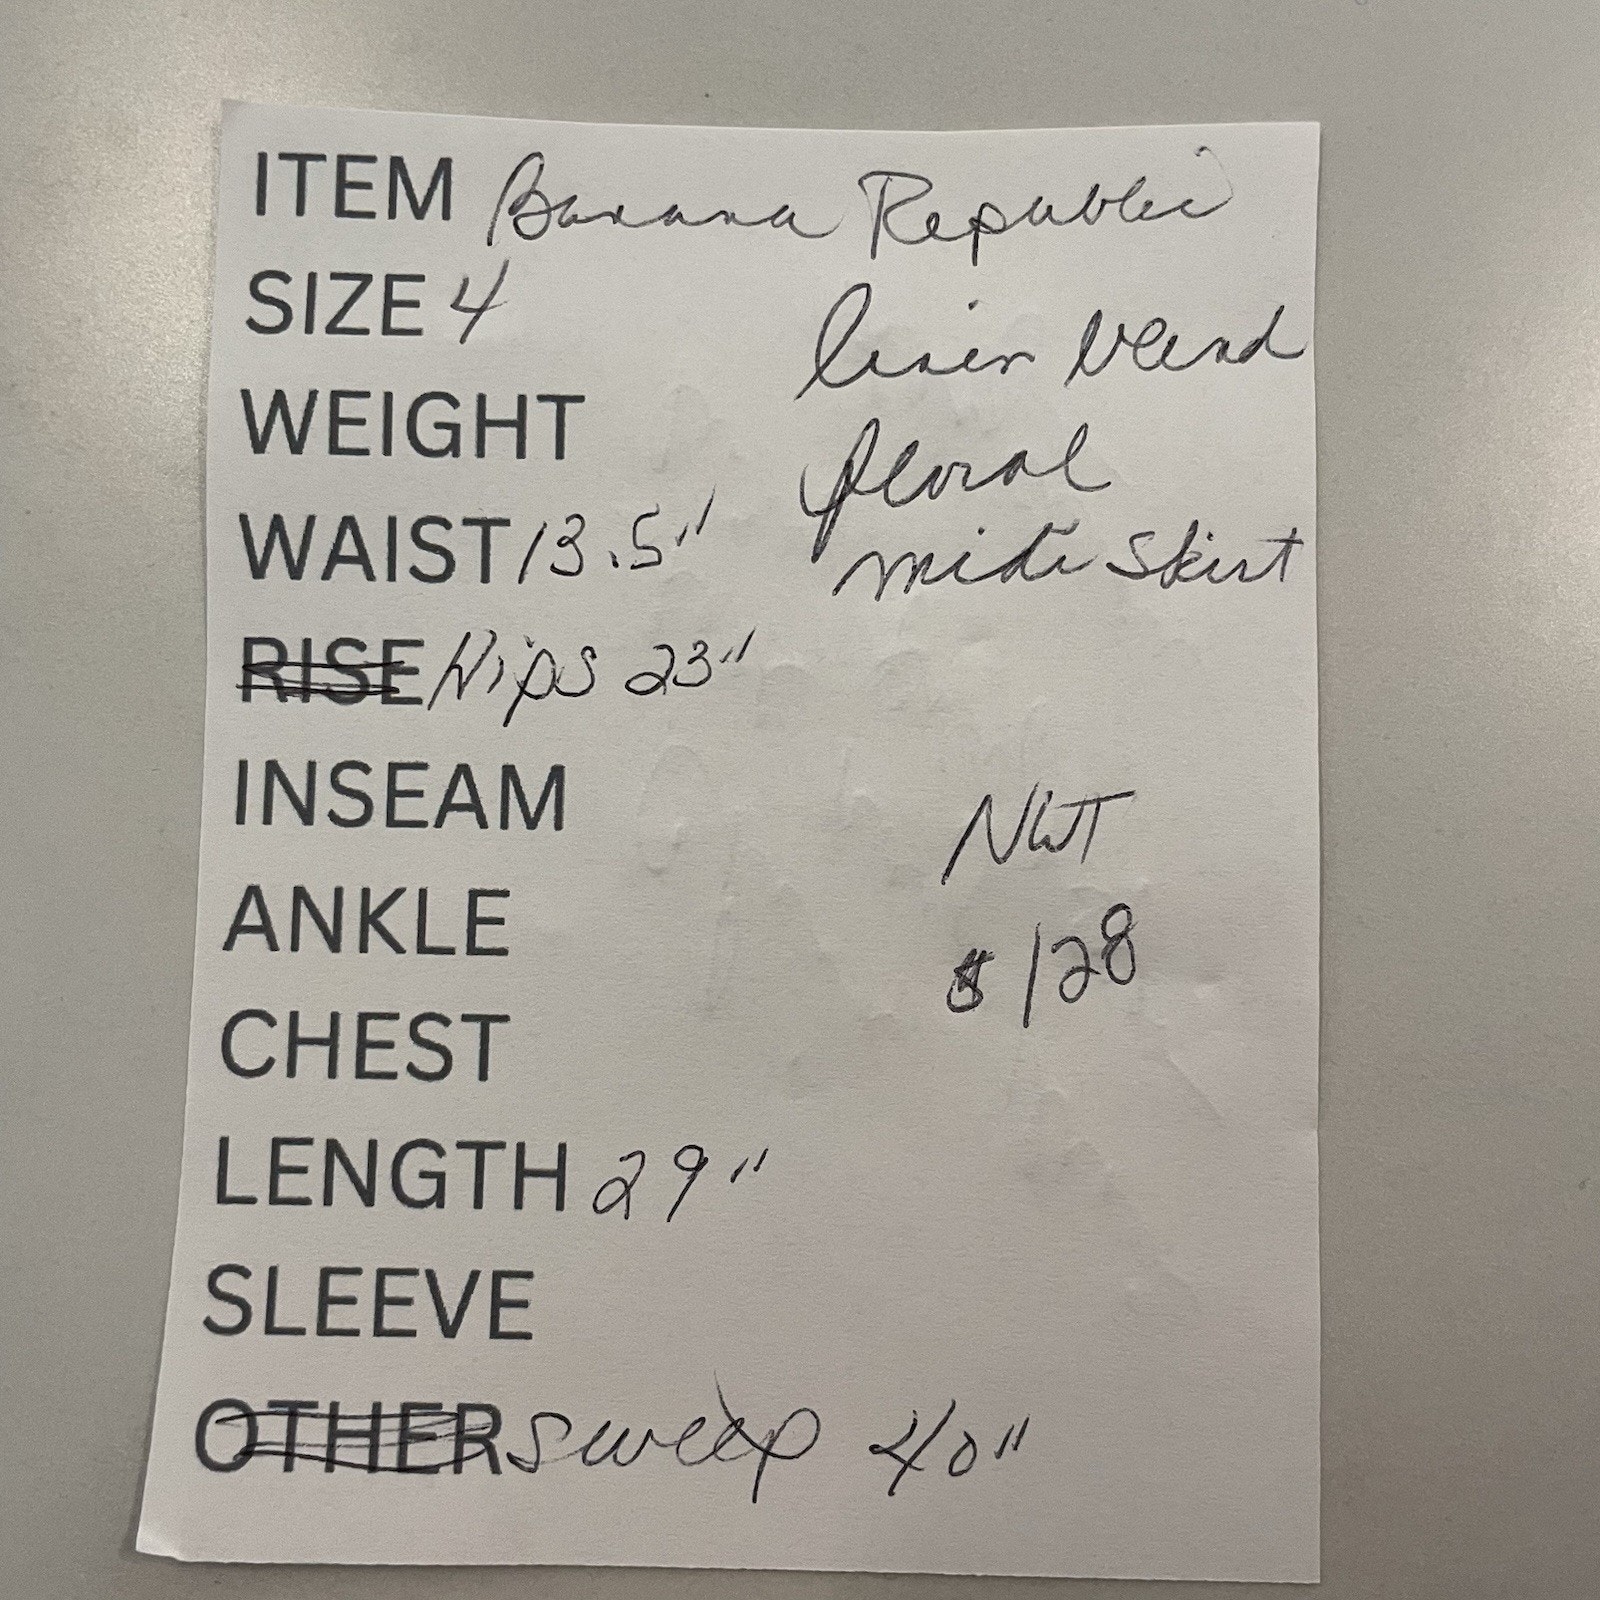 ITEM Banana Republic
SIZE 4
linen blend
WEIGHT
floral
WAIST 13.5"
midi skirt
RISE Hips 23"
INSEAM
NWT
ANKLE
$128
CHEST
LENGTH 29"
SLEEVE
OTHER sweep 40"